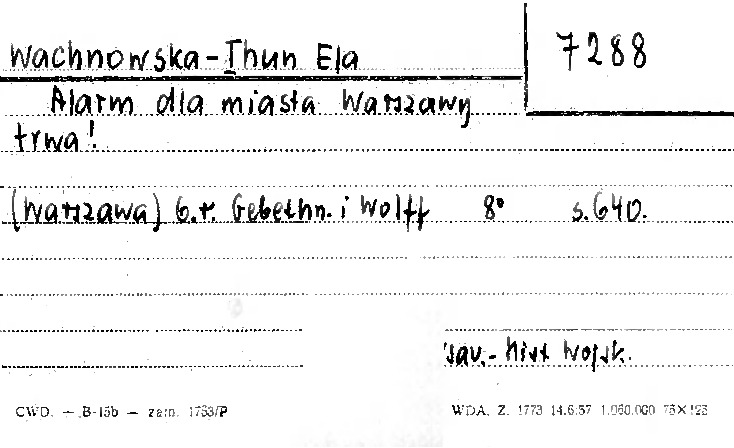 Wachnowska-Thun Ela
7288
Alarm dla miasta Warszawy
trwa!
(Warszawa) b.r. Gebethn. i Wolff 8° s.640.
Wojsk.
CWD. — B-15b — zam. 1733/P
WDA. Z. 1773 14.6.57 1.060.000 75×125